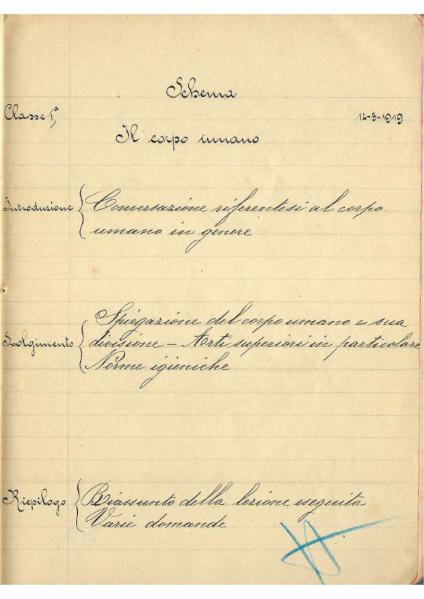 Schema
Classe 1ª 12-3-1919
Il corpo umano
Introduzione { Conversazione riferentesi al corpo
umano in genere
Spiegazione del corpo umano e sua
Svolgimento { divisione - Arti superiori in particolare
Norme igieniche
Riepilogo { Riassunto della lezione eseguita
Varie domande